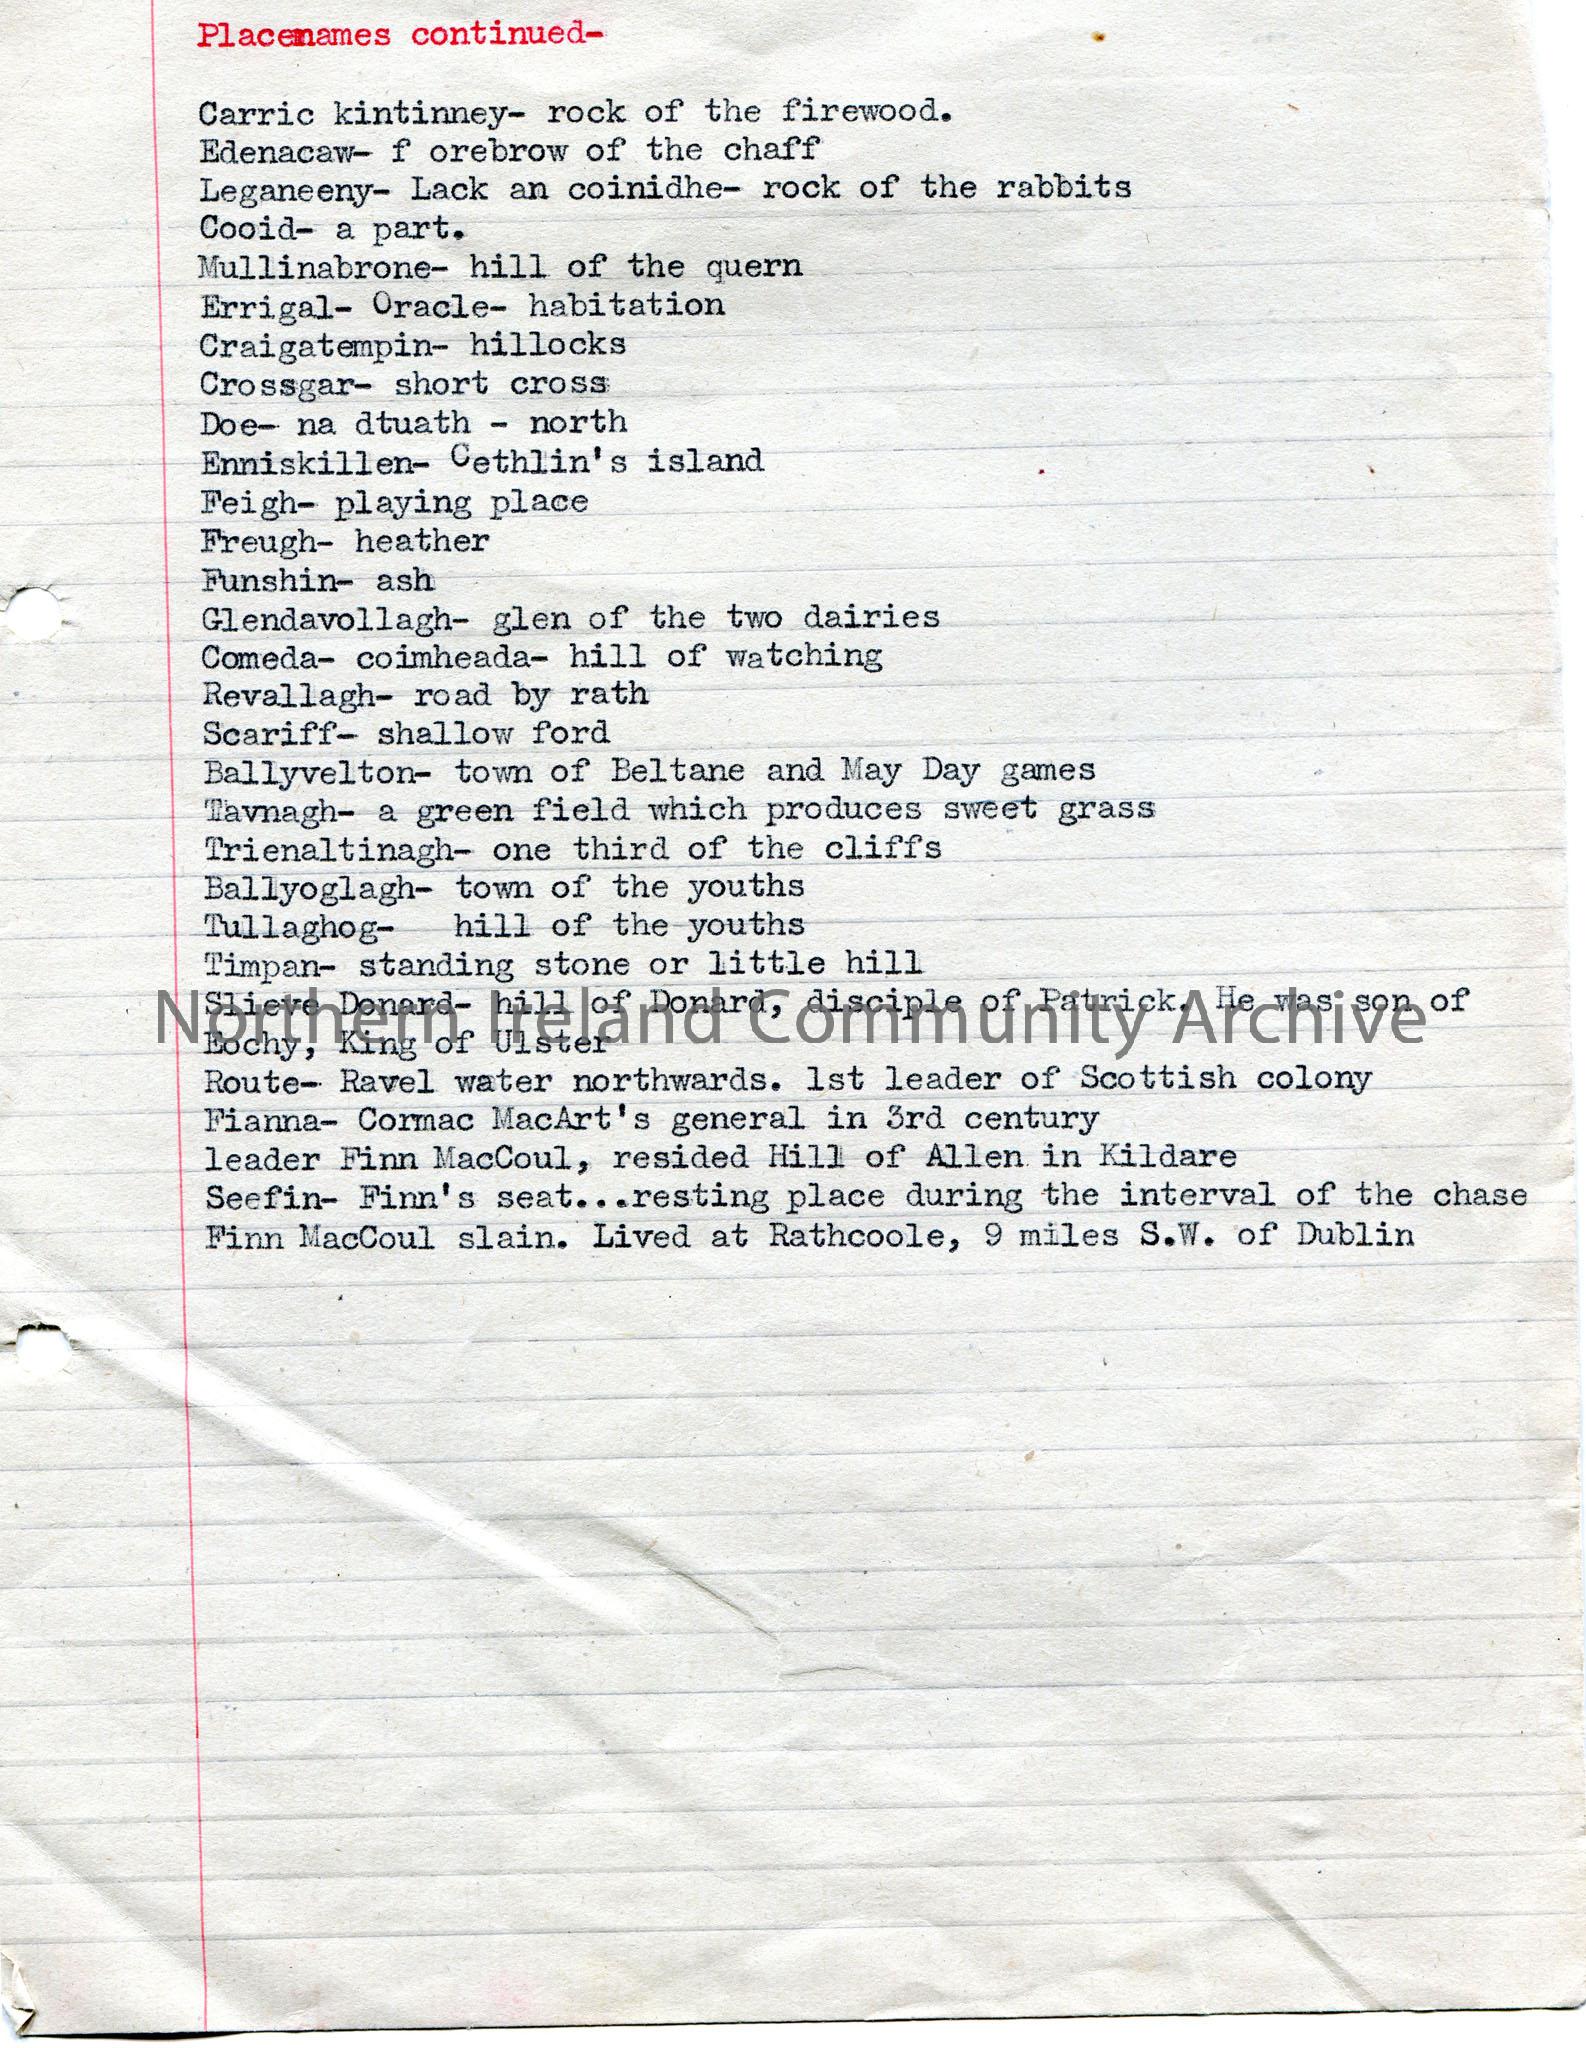 Placenames continued-
Carric kintinney- rock of the firewood.
Edenacaw- f orebrow of the chaff
Leganeeny- Lack an coinidhe- rock of the rabbits
Cooid- a part.
Mullinabrone- hill of the quern
Errigal- Oracle- habitation
Craigatempin- hillocks
Crossgar- short cross
Doe- na dtuath - north
Enniskillen- Cethlin's island
Feigh- playing place
Freugh- heather
Funshin- ash
Glendavollagh- glen of the two dairies
Comeda- coimheada- hill of watching
Revallagh- road by rath
Scariff- shallow ford
Ballyvelton- town of Beltane and May Day games
Tavnagh- a green field which produces sweet grass
Trienaltinagh- one third of the cliffs
Ballyoglagh- town of the youths
Tullaghog- hill of the youths
Timpan- standing stone or little hill
Slieve Donard- hill of Donard, disciple of Patrick. He was son of
Northern Ireland Community Archive
Eochy, King of Ulster
Route- Ravel water northwards. 1st leader of Scottish colony
Fianna- Cormac MacArt's general in 3rd century
leader Finn MacCoul, resided Hill of Allen in Kildare
Seefin- Finn's seat...resting place during the interval of the chase
Finn MacCoul slain. Lived at Rathcoole, 9 miles S.W. of Dublin